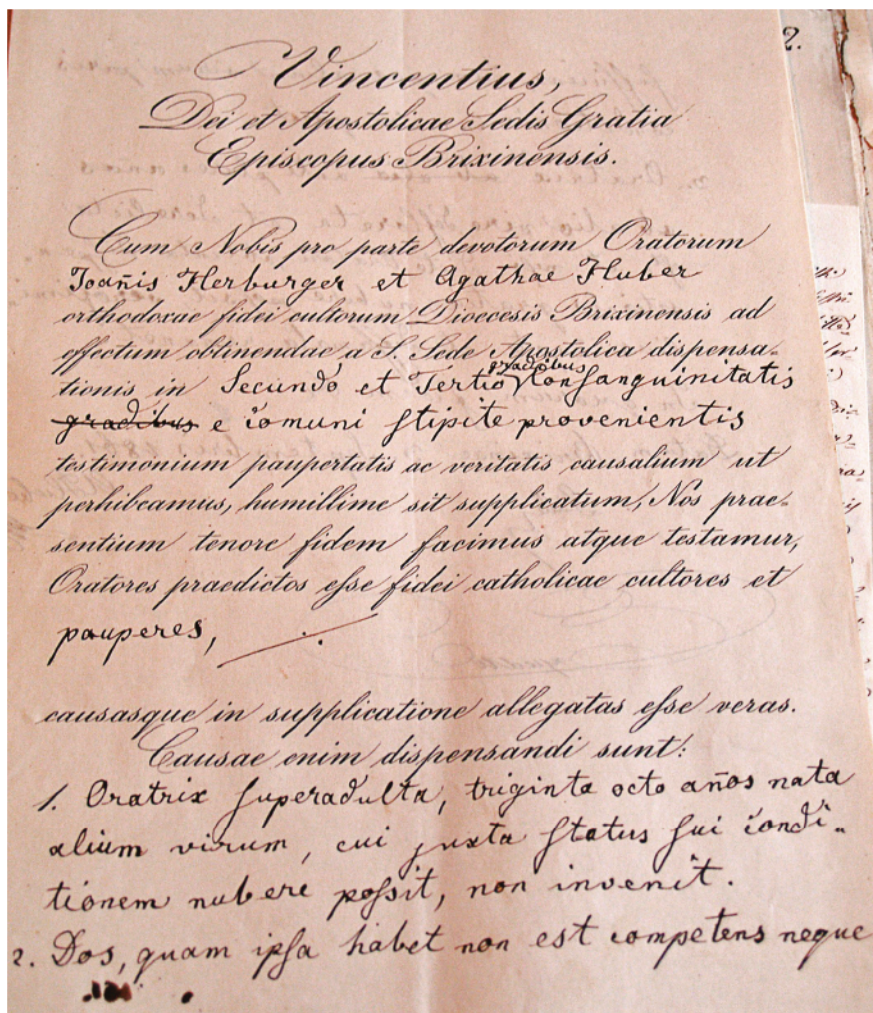 2.
Vincentius,
Dei et Apostolicae Sedis Gratia
Episcopus Brixinensis.
Cum Nobis pro parte devotorum Oratorum
Joan̄is Herburger et Agathae Huber
orthodoxae fidei cultorum Dioecesis Brixinensis ad
effectum obtinendae a S. Sede Apostolica dispensa-
gradibus
tionis in Secundo et Tertio Consanguinitatis
gradibus e com̄uni stipite provenientis
testimonium paupertatis ac veritatis causalium ut
perhibeamus, humillime sit supplicatum, Nos prae-
sentium tenore fidem facimus atque testamur,
Oratores praedictos eſse fidei catholicae cultores et
pauperes,
causasque in supplicatione allegatas eſse veras.
Causae enim dispensandi sunt:
1. Oratrix ſuperadulta, triginta octo an̄os nata
alium virum, cui juxta ſtatus ſui condi-
tionem nubere poſsit, non invenit.
2. Dos, quam ipſa habet non est competens neque